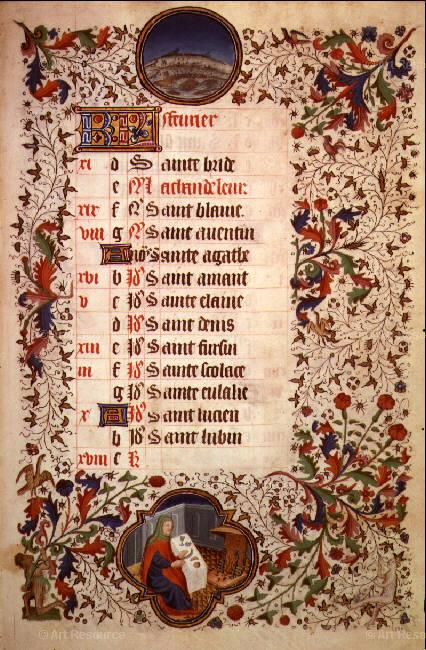 KL feurier
xi d Sainte bride
e N La chandeleur
xix f N Saint blaiue.
viii g N Saint auentin
A Sainte agathe
xvi b Saint amant
v c Sainte elaine
d Saint denis
xiii e Saint fursin
iii f Sainte scolace
g Sainte eulalie
x A Saint lucien
b Saint lubin
xviii c
© Art Resource © Art Resource